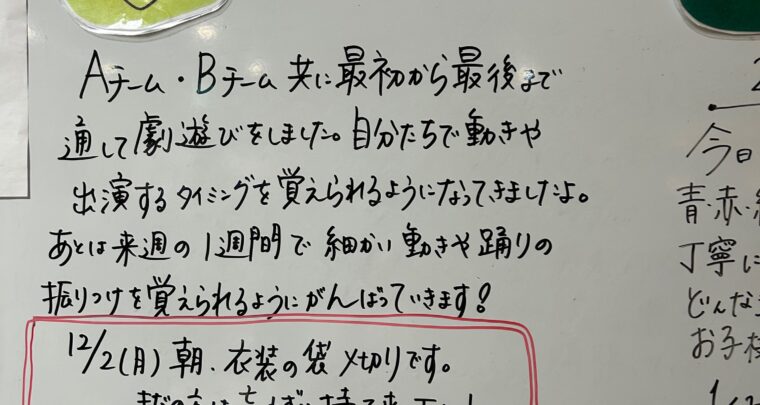 Aチーム・Bチーム 共に最初から最後まで
通して劇遊びをしました。自分たちで動きや
出演するタイミングを覚えられるようになってきましたよ。
あとは来週の1週間で細かい動きや踊りの
振りつけを覚えられるようにがんばっていきます!
12/2(月)朝、衣装の袋〆切りです。
今日
青・赤・
丁寧に
どんな
お子様